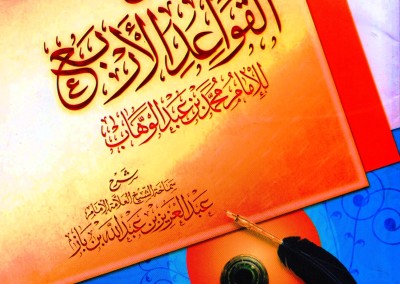 القواعد الأربع
للإمام محمد بن عبد الوهاب
شرح
سماحة الشيخ العلامة الإمام
عبد العزيز بن عبد الله بن باز